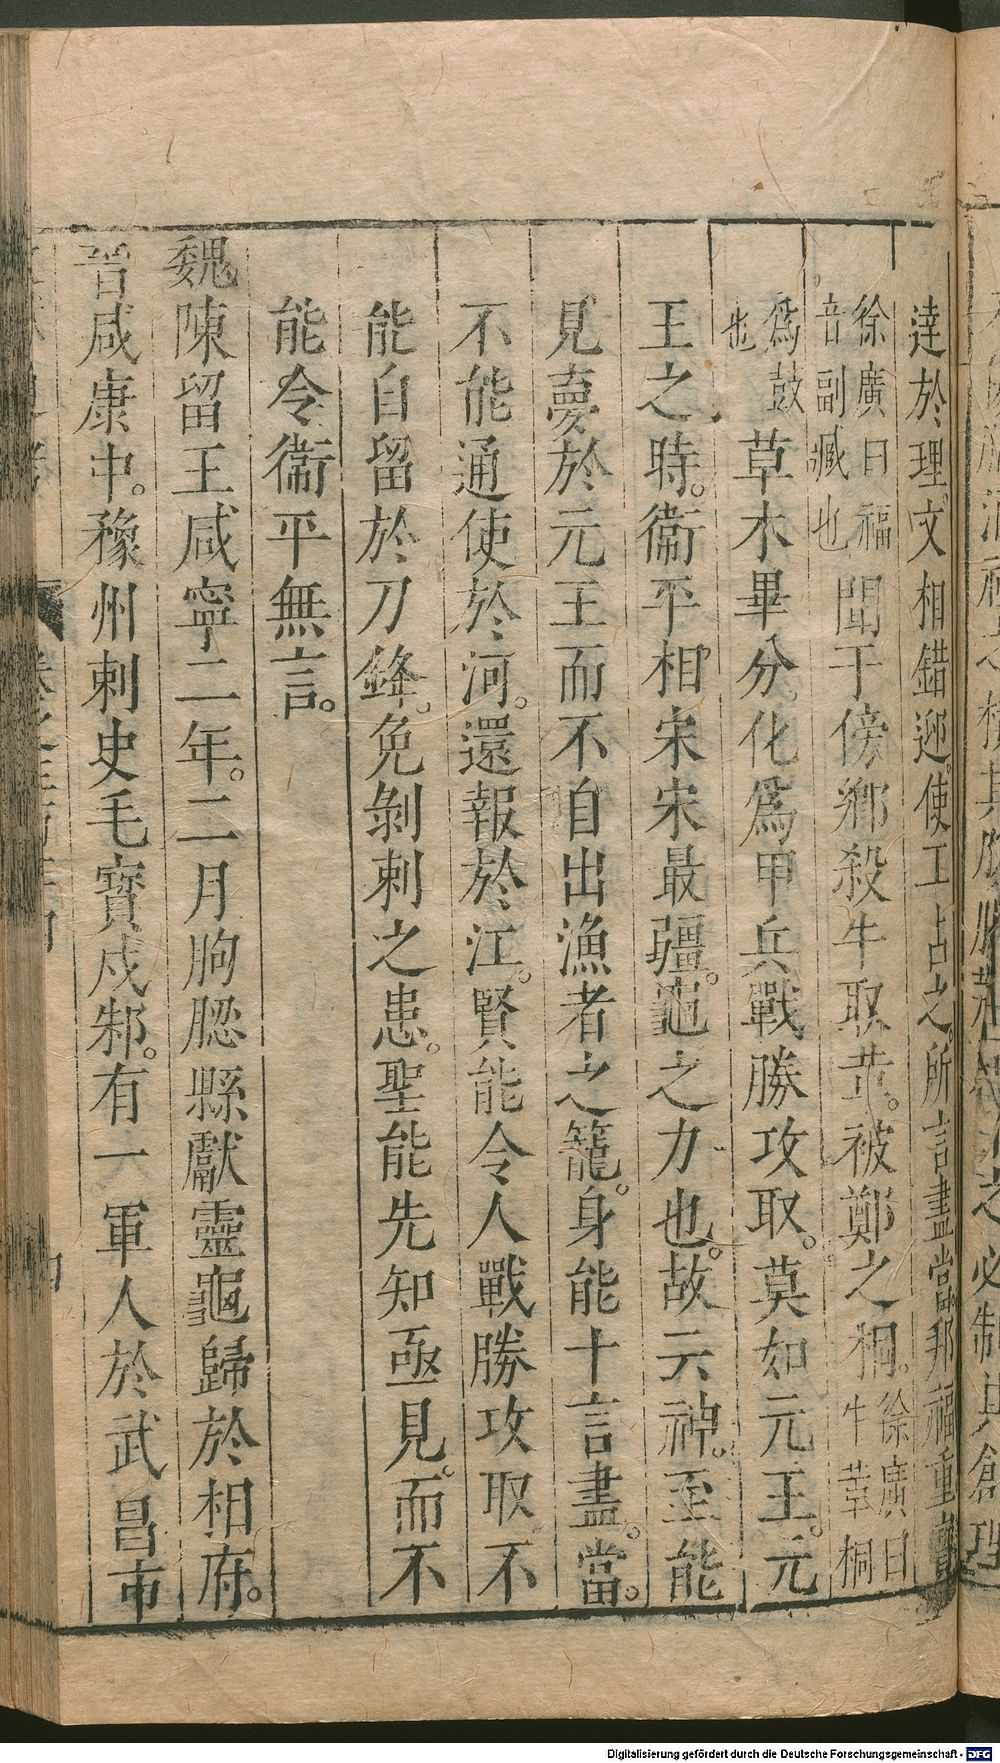 達於理。文相錯迎。使工占之。所言盡當邦福重寶
徐廣曰福音副臧也聞于傍鄉殺牛取革。被鄭之桐。徐廣曰牛革桐
為鼓也草木畢分。化為甲兵戰勝攻取。莫如元王。元
王之時。衞平相宋宋最彊。龜之力也。故云神。至能
見夢於元王而不自出漁者之籠。身能十言盡。當。
不能通使於河。還報於江。賢能令人戰勝攻取不
能自留於刀鋒。免剝刺之患。聖能先知亟見。而不
能令衞平無言。
魏陳留王咸寧二年。二月朐䏰縣獻靈龜歸於相府。
晉咸康中。豫州刺史毛寶戍邾。有一軍人於武昌市
Digitalisierung gefördert durch die Deutsche Forschungsgemeinschaft - DFG